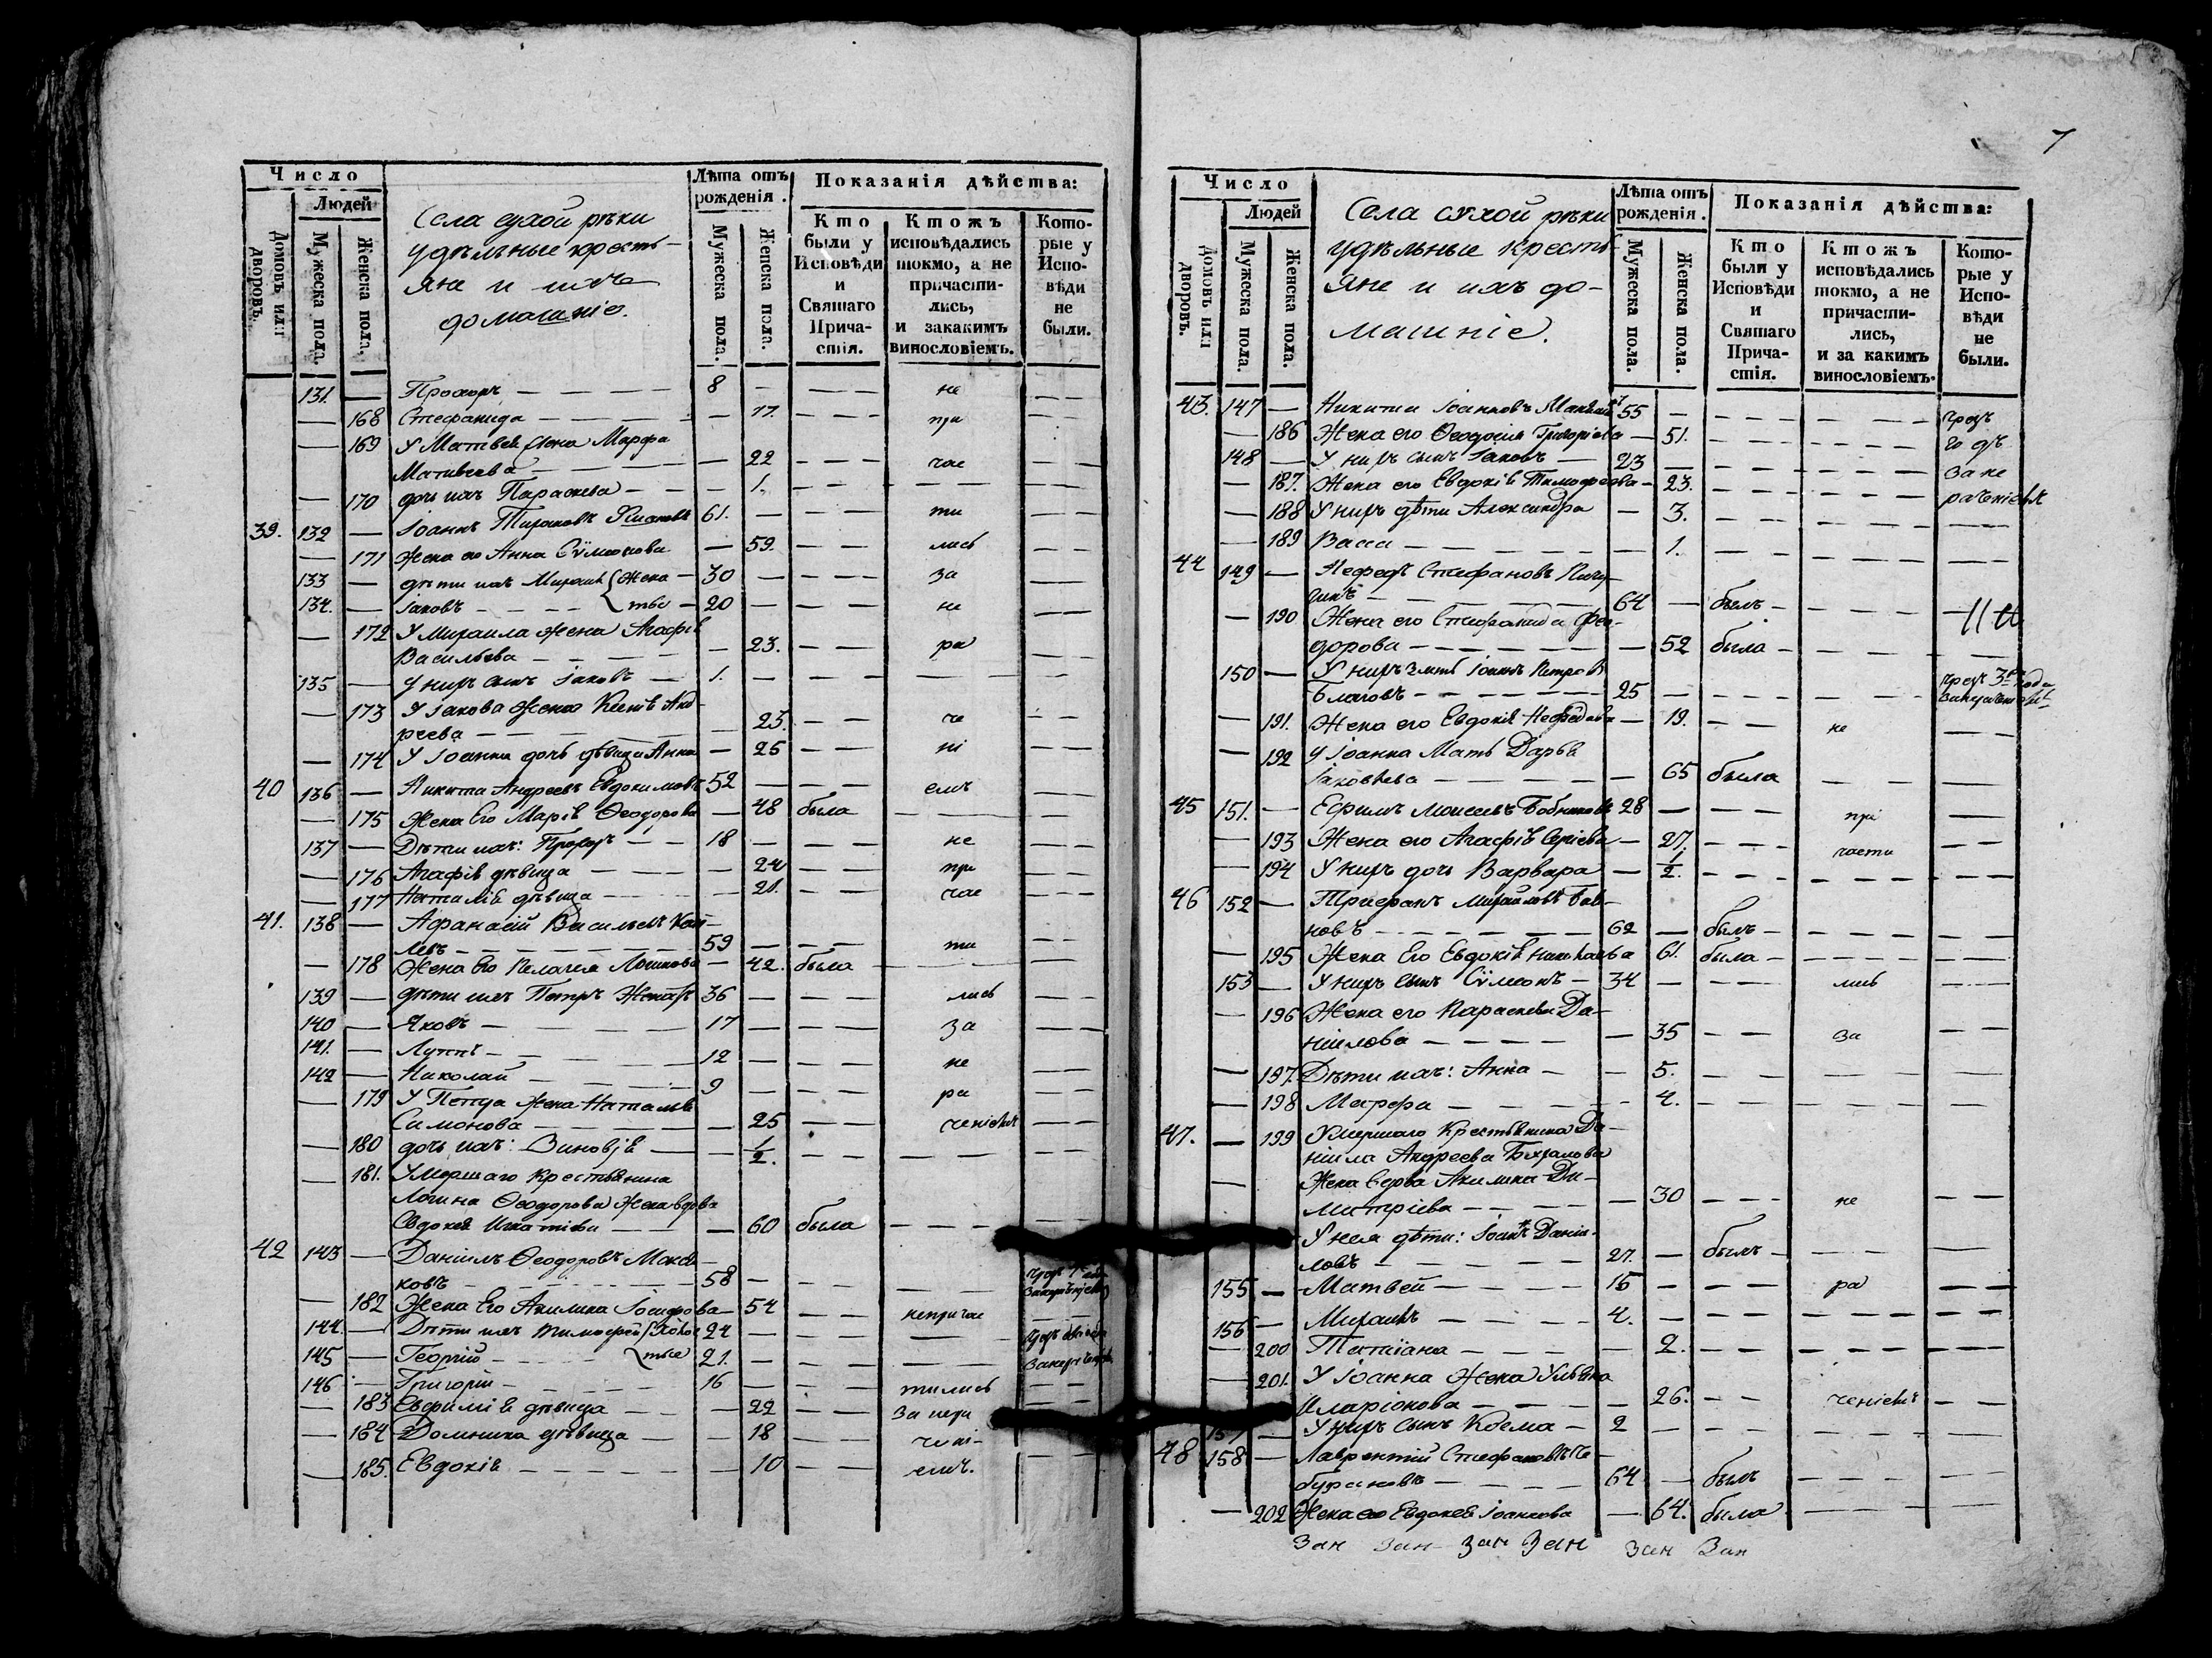 Число
Людей
Домовъ или дворовъ.
Мужеска пола.
Женска пола.
Села сухой рѣки
удѣльные кресть-
яне и ихъ
домашніе.
Лѣта отъ рожденія.
Мужеска пола.
Женска пола.
Показанія дѣйства:
Кто были у Исповѣди и Святаго Прича-стія.
Ктожъ исповѣдались токмо, а не причасти-лись, и закакимъ винословіемъ.
Кото-рые у Испо-вѣди не были.
131. — Прохоръ — 8 — не
— 168 Стефанида — 17. при
— 169 У Матвея жена Марфа
Матвеева — 22 час
— 170 дочь ихъ Параскева — 1.
39. 132 — Іоаннъ 61. — ти
— 171 Жена его Анна Сѵмеонова — 59. лись
133 — дѣти ихъ Михаилъ Жена — 30 — за
134. — Іаковъ — тые — 20 — не
— 172 У Михаила жена Агафія
Васильева — 23. ра
135 — У нихъ сынъ Іаковъ — 1. —
— 173 У Іакова жена Ксенія Анд-
реева — 23. че
— 174 У Іоанна дочь дѣвица Анна — 25 ні
40 136 — Никита Андреевъ Евдокимовъ 52 — емъ
— 175 Жена Его Марія Ѳеодорова — 48 была
137 — Дѣти ихъ: Прохоръ — 18 — не
— 176 Агафія дѣвица — 24 при
— 177 Наталія дѣвица — 21. час
41. 138 — Афанасій Васильевъ
левъ — 59 — ти
— 178 Жена Его Пелагея Логинова — 42. была
139 — дѣти ихъ Петръ Женатъ 36 — лись
140 — Яковъ — 17 — за
141. — Луппъ — 12 — не
142 — Николай — 9 — ра
— 179 У Петра жена Наталія
Симонова — 25 ченіемъ
— 180 дочь ихъ: Зиновія — 1/2.
— 181. Умершаго крестьянина
Логина Ѳеодорова Жена вдова
Евдокея Игнатіева — 60 была
42 143 — Даніилъ Ѳеодоровъ
ковъ — 58 —
— 182 Жена Его Акилина Іосифова — 54 непричас
144. — Дѣти ихъ Тимофей Холос 24 —
145 — Георгій — тые 21. —
146 — Григорій — 16 — тились
— 183 Евфимія дѣвица — 22 за нера
— 184 Домника дѣвица — 18 чені-
— 185. Евдокія — 10 емъ.
7
Число
Людей
Домовъ или дворовъ.
Мужеска пола.
Женска пола.
Села сухой рѣки
удѣльные кресть-
яне и ихъ до-
машніе.
Лѣта отъ рожденія.
Мужеска пола.
Женска пола.
Показанія дѣйства:
Кто были у Исповѣди и Святаго Прича-стія.
Ктожъ исповѣдались токмо, а не причасти-лись, и за какимъ винословіемъ.
Кото-рые у Испо-вѣди не были.
43. 147 — Никита Іоанновъ 55 —
— 186 Жена его Ѳеодосія Григоріева — 51.
148 — У нихъ сынъ Іаковъ — 23 — за не
— 187. Жена его Евдокія Тимофеева — 23. раченіемъ
— 188 У нихъ дѣти Александра — 3.
— 189 Васса — 1.
44 149 — Нефедъ Стефановъ
64 — былъ
— 190 Жена его Стефанида Фео-
дорова — 52 была
150 — У нихъ зять Іоаннъ Петровъ
Благовъ — 25 —
— 191. Жена его Евдокія Нефедова — 19. не
— 192 У Іоанна Мать Дарья
Іаковлева — 65 была
45 151. — Ефимъ Моисеевъ 28 — при
— 193 Жена его Агафія Сергіева — 27. части
— 194 У нихъ дочь Варвара — 1/2.
46 152 — Трифонъ Михайловъ
новъ — 62 — былъ
— 195 Жена Его Евдокія Николаева 61. была
153 — У нихъ сынъ Сѵмеонъ — 34 — лись
— 196 Жена его Параскева Да-
ніилова — 35 за
— 197. Дѣти ихъ: Анна — 5.
— 198 Марфа — 4.
47. — 199 Умершаго Крестьянина Да-
ніила Андреева
Жена вдова Акилина Ди-
митріева — 30 не
У нея дѣти: Іоаннъ Даніи-
ловъ — 27. — былъ
155 — Матвей — 15 — ра
156 — Михаилъ — 4. —
— 200 Татіана — 2.
— 201. У Іоанна Жена Ульяна
Иларіонова — 26. ченіемъ
157 — У нихъ сынъ Косма — 2
48 158 — Лаврентій Стефановъ Че-
бурановъ — 64 — былъ
— 202 Жена его Евдокея Іоаннова — 64. была
Зан Зан Зан Зан Зан Зан